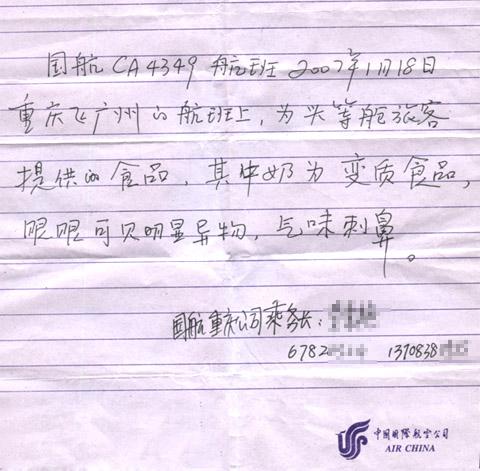 国航 CA4349 航班 2007年1月18日
重庆飞广州的航班上，为头等舱旅客
提供的食品，其中奶为变质食品，
眼眼可见明显异物，气味刺鼻。
国航重庆公司乘务长：
6782 1370838
中国国际航空公司
AIR CHINA